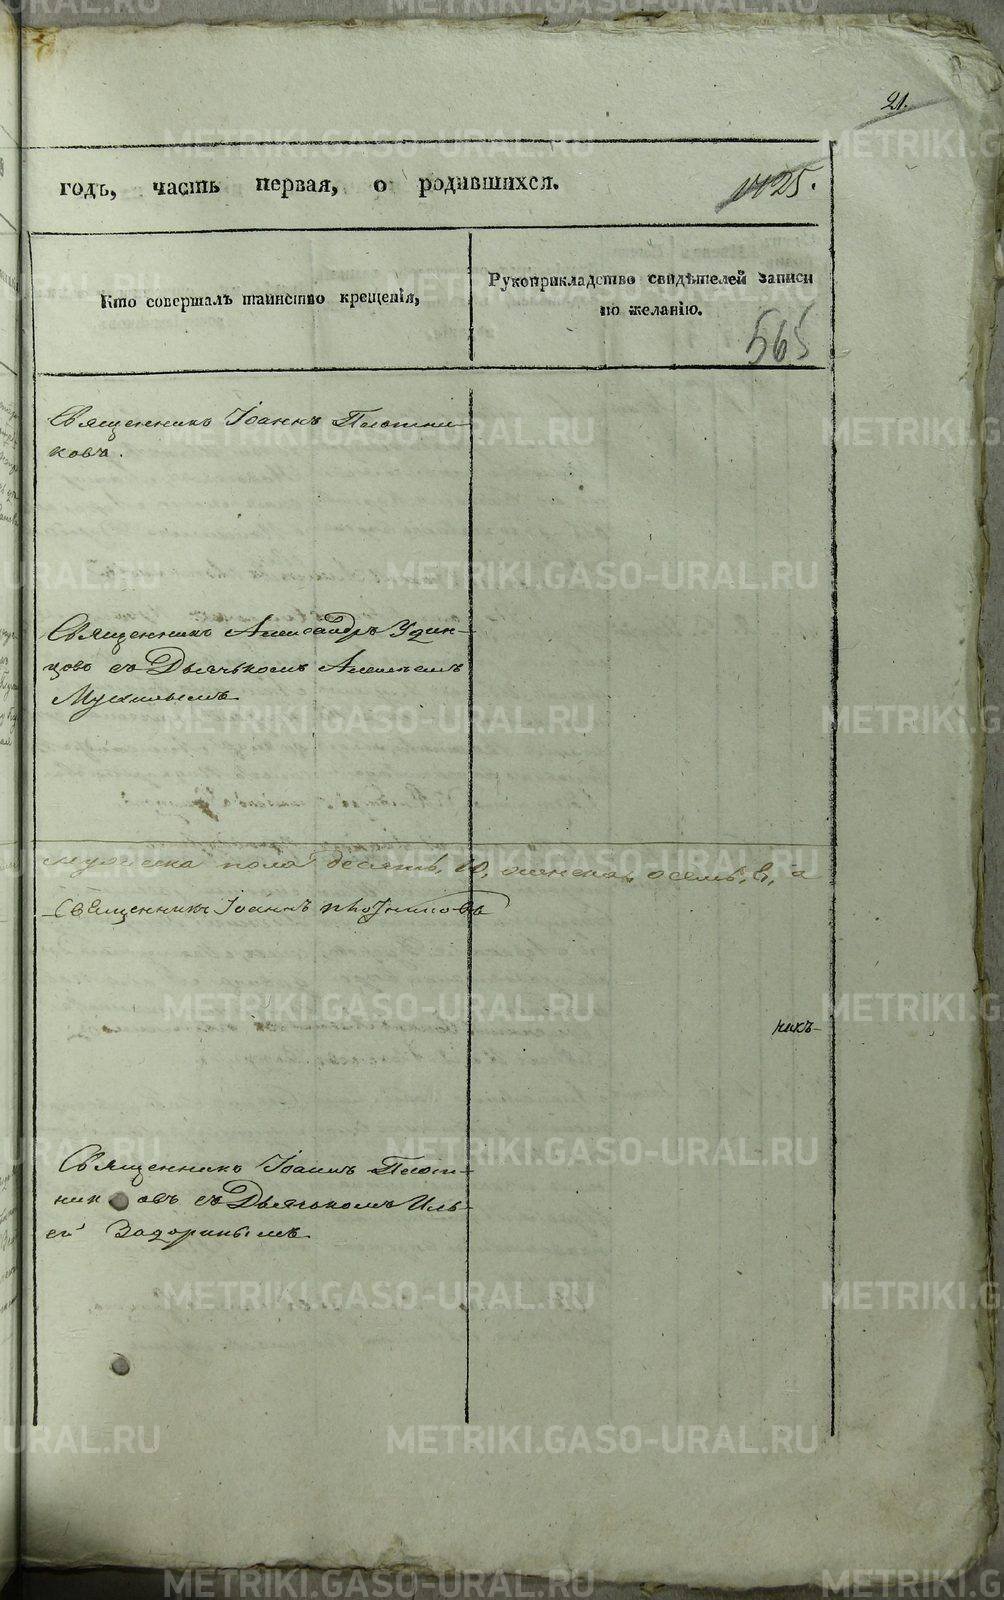 21.
годъ, часть первая, о родившихся.
1425.
Кто совершалъ таинство крещенія,
Рукоприкладство свидѣтелей записи
по желанію.
565
Священникъ Іоаннъ Плотни-
ковъ.
Священникъ Александръ Удин-
цовъ съ Дьячькомъ Алексѣемъ
мужеска пола десять, 10, женска, осемь, 8, а
Священникъ Іоаннъ Плотниковъ
никъ-
Священникъ Іоаннъ Плот-
никовъ съ Дьячькомъ Иль-
ей Задоринымъ
METRIKI.GASO-URAL.RU